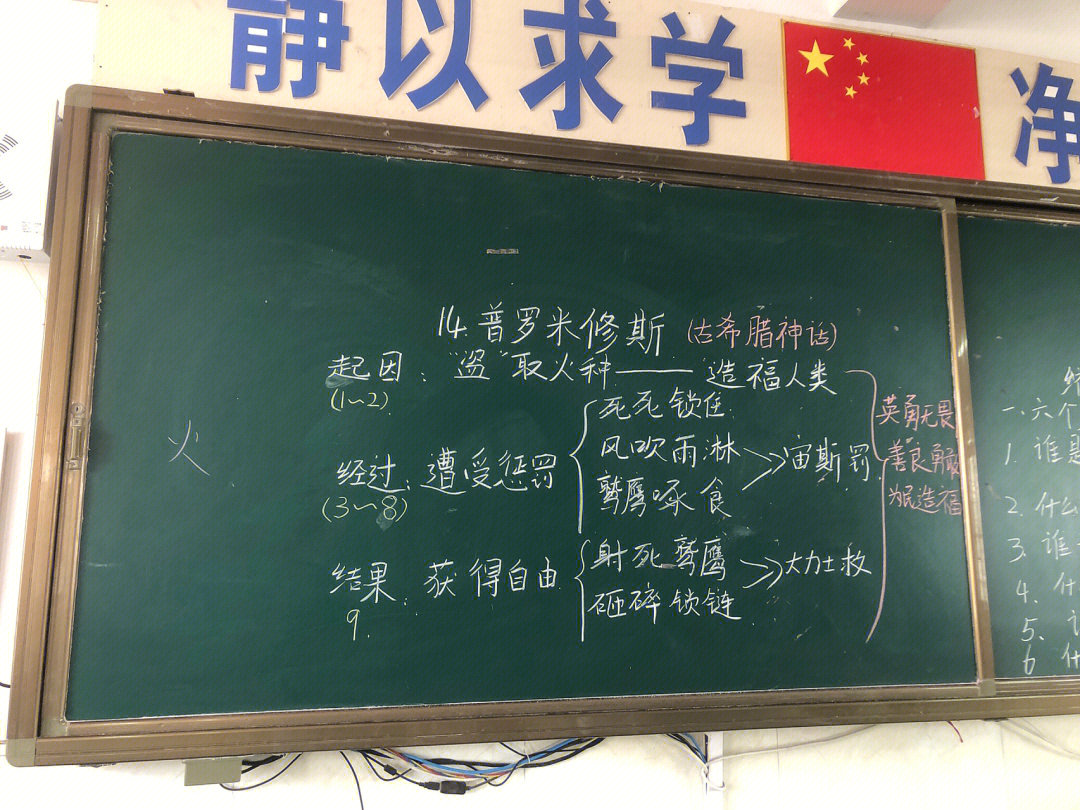 静以求学
净
14.普罗米修斯(古希腊神话)
起因:"盗"取火种——造福人类
(1~2)
火
经过:遭受惩罚
(3~8)
死死锁住
风吹雨淋
鹫鹰啄食
宙斯罚
结果:获得自由
9.
射死鹫鹰
砸碎锁链
大力士救
英勇无畏
善良勇敢
为民造福
一.六个
1.谁是
2.什么
3.谁
4.什
5.
6什